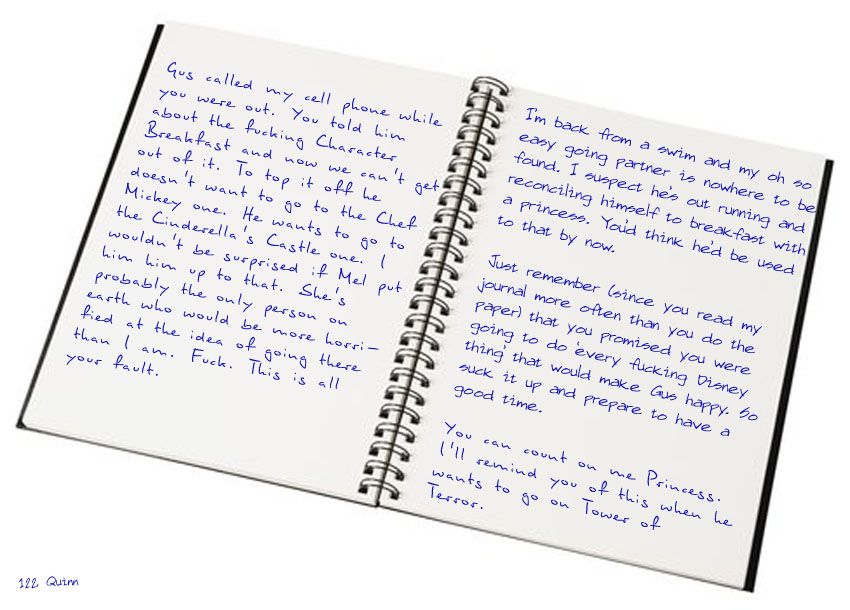 Gus called my cell phone while
you were out. You told him
about the fucking Character
Breakfast and now we can't get
out of it. To top it off he
doesn't want to go to the Chef
Mickey one. He wants to go to
the Cinderella's Castle one. I
wouldn't be surprised if Mel put
him him up to that. She's
probably the only person on
earth who would be more horri-
fied at the idea of going there
than I am. Fuck. This is all
your fault.
I'm back from a swim and my oh so
easy going partner is nowhere to be
found. I suspect he's out running and
reconciling himself to breakfast with
a princess. You'd think he'd be used
to that by now.
Just remember (since you read my
journal more often than you do the
paper) that you promised you were
going to do 'every fucking Disney
thing' that would make Gus happy. So
suck it up and prepare to have a
good time.
You can count on me Princess.
I'll remind you of this when he
wants to go on Tower of
Terror.
122 Quinn